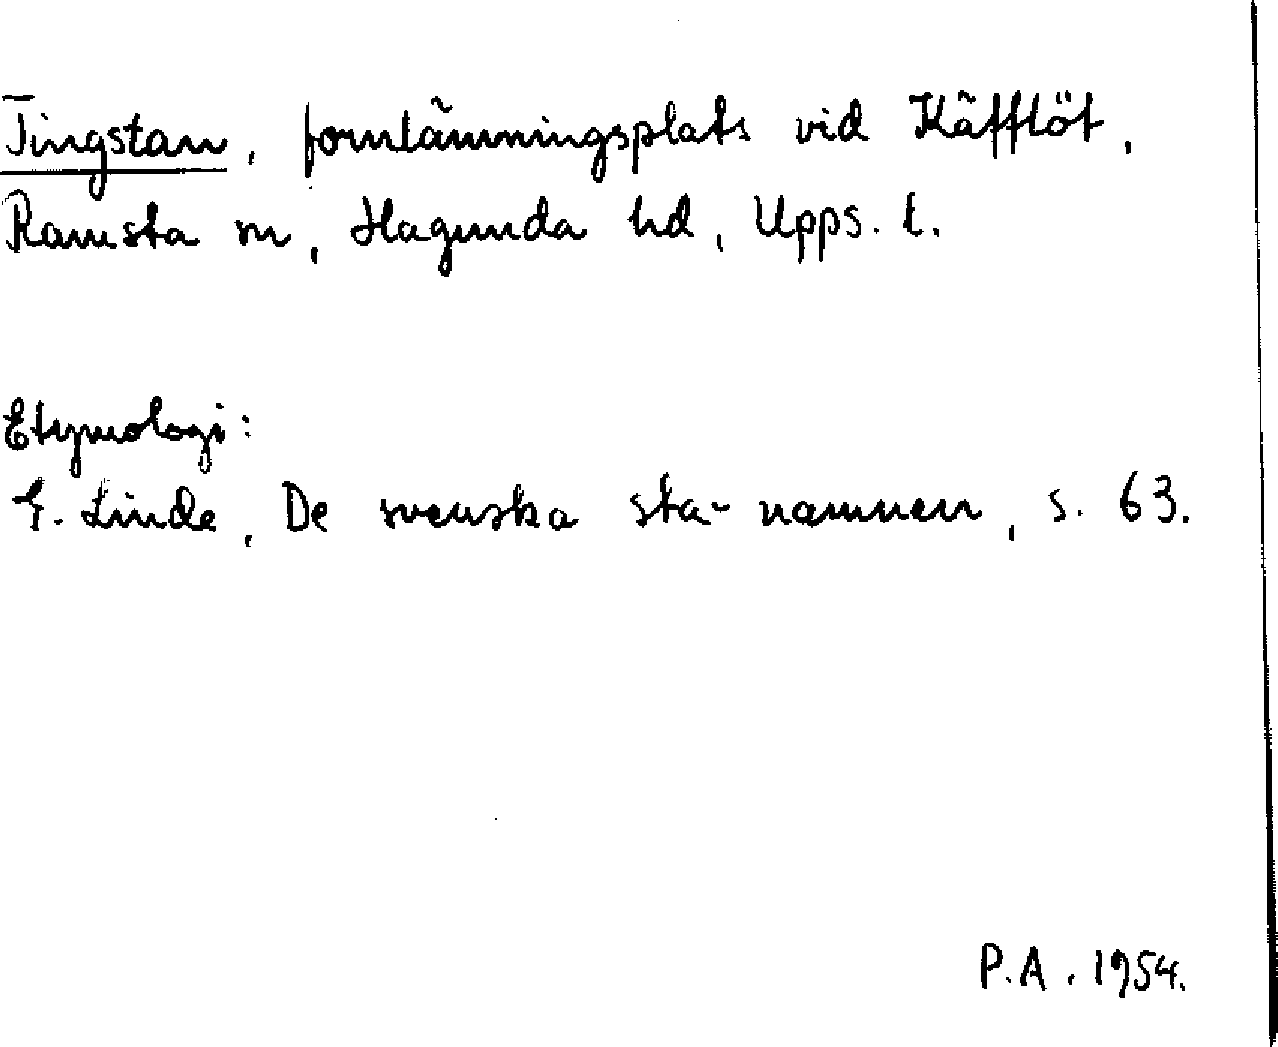 Tingstan, fornlämningsplats vid Käfflöt,
Ramsta sn, Hagunda hd, Upps. l.
Etymologi:
G. Linde, De svenska sta-namnen, s. 63.
P.A. 1954.